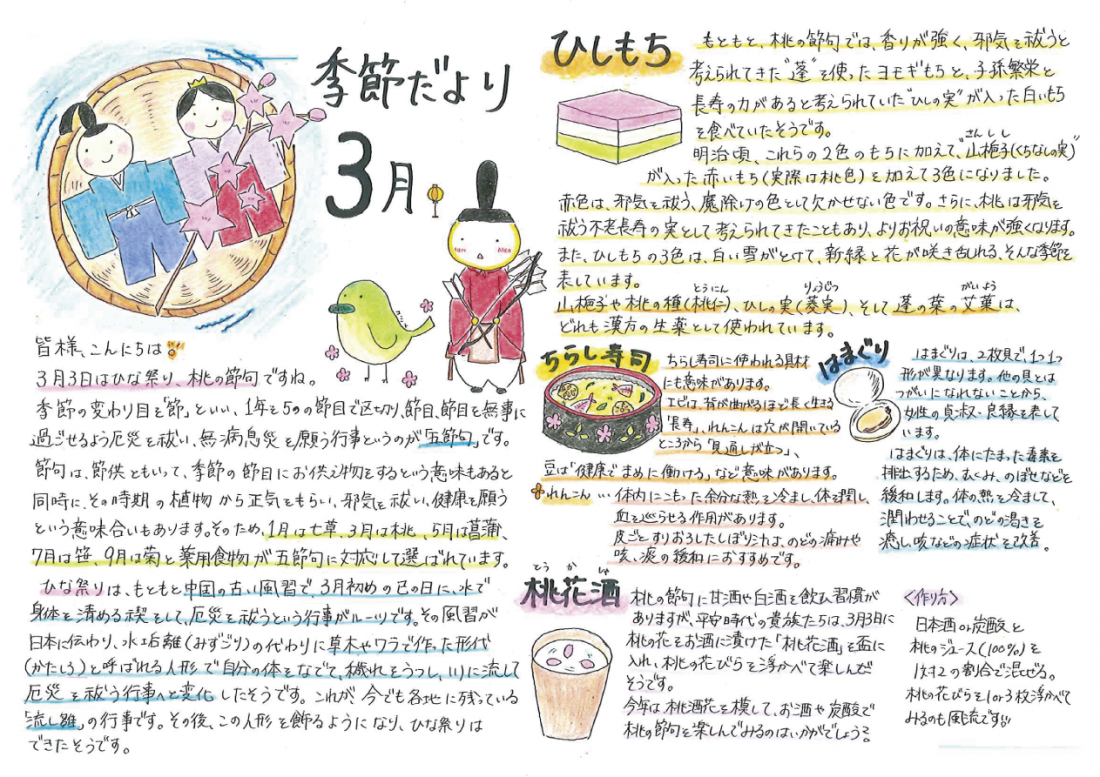 季節だより
3月
皆様、こんにちは
3月3日はひな祭り、桃の節句ですね。
季節の変わり目を「節」といい、1年を5つの節目で区切り、節目、節目を無事に
過ごせるよう厄災を祓い、無病息災を願う行事というのが「五節句」です。
節句は、節供ともいって、季節の節目にお供え物をするという意味もあると
同時に、その時期の植物から正気をもらい、邪気を祓い、健康を願う
という意味合いもあります。そのため、1月は七草、3月は桃、5月は菖蒲、
7月は笹、9月は菊と薬用食物が五節句に対応して選ばれています。
ひな祭りは、もともと中国の古い風習で、3月初めの巳の日に、水で
身体を清める禊として、厄災を祓うという行事がルーツです。その風習が
日本に伝わり、水垢離(みずごり)の代わりに草木やワラで作った形代
(かたしろ)と呼ばれる人形で自分の体をなでて、穢れをうつし、川に流して
厄災を祓う行事へと変化したそうです。これが、今でも各地に残っている
「流し雛」の行事です。その後、この人形を飾るようになり、ひな祭りは
できたそうです。
ひしもち
もともと、桃の節句では、香りが強く、邪気を祓うと
考えられてきた"蓬"を使ったヨモギもちと、子孫繁栄と
長寿の力があると考えられていた"ひしの実"が入った白いもち
を食べていたそうです。
明治頃、これらの2色のもちに加えて、"山梔子(くちなしの実)"
さんしし
が入った赤いもち(実際は桃色)を加えて3色になりました。
赤色は、邪気を祓う、魔除けの色として欠かせない色です。さらに、桃は邪気を
祓う不老長寿の実として考えられてきたこともあり、よりお祝いの意味が強くなります。
また、ひしもちの3色は、白い雪がとけて、新緑と花が咲き乱れる、そんな季節を
表しています。
とうにん りょうじつ がいよう
山梔子や桃の種(桃仁)、ひしの実(菱実)、そして蓬の葉の艾葉は、
どれも漢方の生薬として使われています。
ちらし寿司
ちらし寿司に使われる具材
にも意味があります。
エビは、背が曲がるほど長く生きる
「長寿」、れんこんは穴が開いている
ところから「見通しが立つ」、
豆は「健康でまめに働ける」など意味があります。
れんこん…体内にこもった余分な熱を冷まし、体を潤し、
血を巡らせる作用があります。
皮ごとすりおろしたしぼり汁は、のどの痛みや
咳、痰の緩和におすすめです。
はまぐり
はまぐりは、2枚貝で、1つ1つ
形が異なります。他の貝とは
つがいになれないことから、
女性の貞淑・良縁を表して
います。
はまぐりは、体にたまった毒素を
排出するため、むくみ、のぼせなどを
緩和します。体の熱を冷まして、
潤わせることで、のどの渇きを
癒し、咳などの症状を改善。
とうかしゅ
桃花酒
桃の節句に甘酒や白酒を飲む習慣が
ありますが、平安時代の貴族たちは、3月3日に
桃の花をお酒に漬けた「桃花酒」を盃に
入れ、桃の花びらを浮かべて楽しんだ
そうです。
今年は桃酒花を模して、お酒や炭酸で
桃の節句を楽しんでみるのはいかがでしょう?
〈作り方〉
日本酒or炭酸と
桃のジュース(100%)を
1対2の割合で混ぜる。
桃の花びらを1or3枚浮かべて
みるのも風流です!!